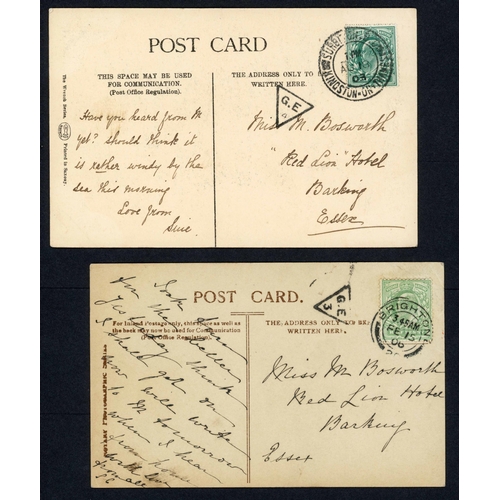 POST CARD
THIS SPACE MAY BE USED
FOR COMMUNICATION.
(Post Office Regulation).
THE ADDRESS ONLY TO BE
WRITTEN HERE.
The Wrench Series,
Printed in Saxony.
Have you heard from M
yet? Should think it
is rather windy by the
sea this morning
Love from
G.E
4
Miss M. Bosworth
"Red Lion" Hotel
Barking
Essex
SURBITON
KINGSTON-ON
03
POST CARD.
For Inland Postage only, this space as well as
the back may now be used for Communication
(Post Office Regulation).
THE ADDRESS ONLY TO BE
WRITTEN HERE.
ROTARY PHOTOGRAPHIC SERIES
Yes I think
I shall get on
now will write
to M tomorrow
when I hear
from
G.E
3
Miss M Bosworth
Red Lion Hotel
Barking
Essex
BRIGHTON
3.45AM
FE 15
06